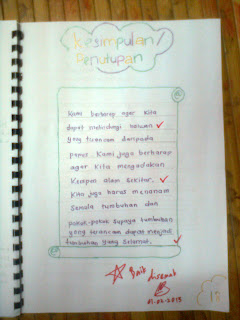 Kesimpulan/
Penutupan
Kami berharap agar kita
dapat melindungi haiwan
yang terancam daripada
pupus. Kami juga berharap
agar kita mengadakan
kempen alam sekitar.
Kita juga harus menanam
semula tumbuhan dan
pokok-pokok supaya tumbuhan
yang terancam dapat menjadi
tumbuhan yang selamat.
Baik disemak
01.02.2013
18